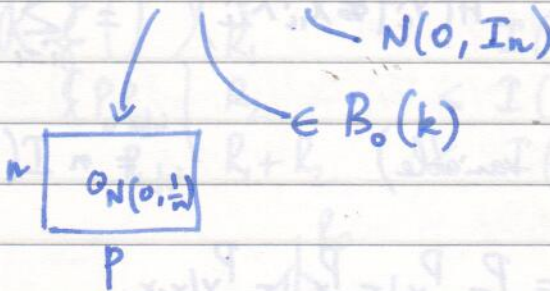 N(0, Iₙ)
∈ B₀(k)
n
N(0, 1/n)
p